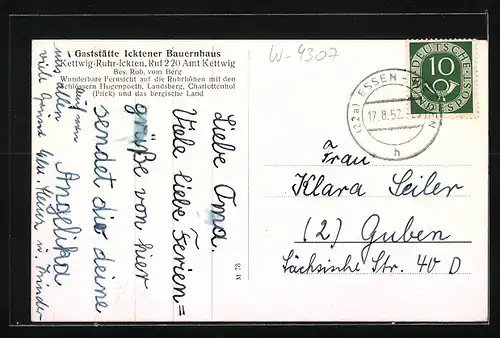 Gaststätte Icktener Bauernhaus
Kettwig-Ruhr-Ickten, Ruf 2 20 Amt Kettwig
Bes. Rob. vom Berg
Wunderbare Fernsicht auf die Ruhrhöhen mit den
Schlössern Hugenpoeth, Landsberg, Charlottenhof
(Flick) und das bergische Land
W-4307
DEUTSCHE
10
BUNDESPOST
(22a) ESSEN
17.8.52
h
Liebe Oma.
Viele liebe Ferien=
grüße von hier
sendet dir deine
Angelika
auf von
uns allen
viele Grüße
M 78
Frau
Klara Seiler
(2) Guben
Sächsische Str. 40 D